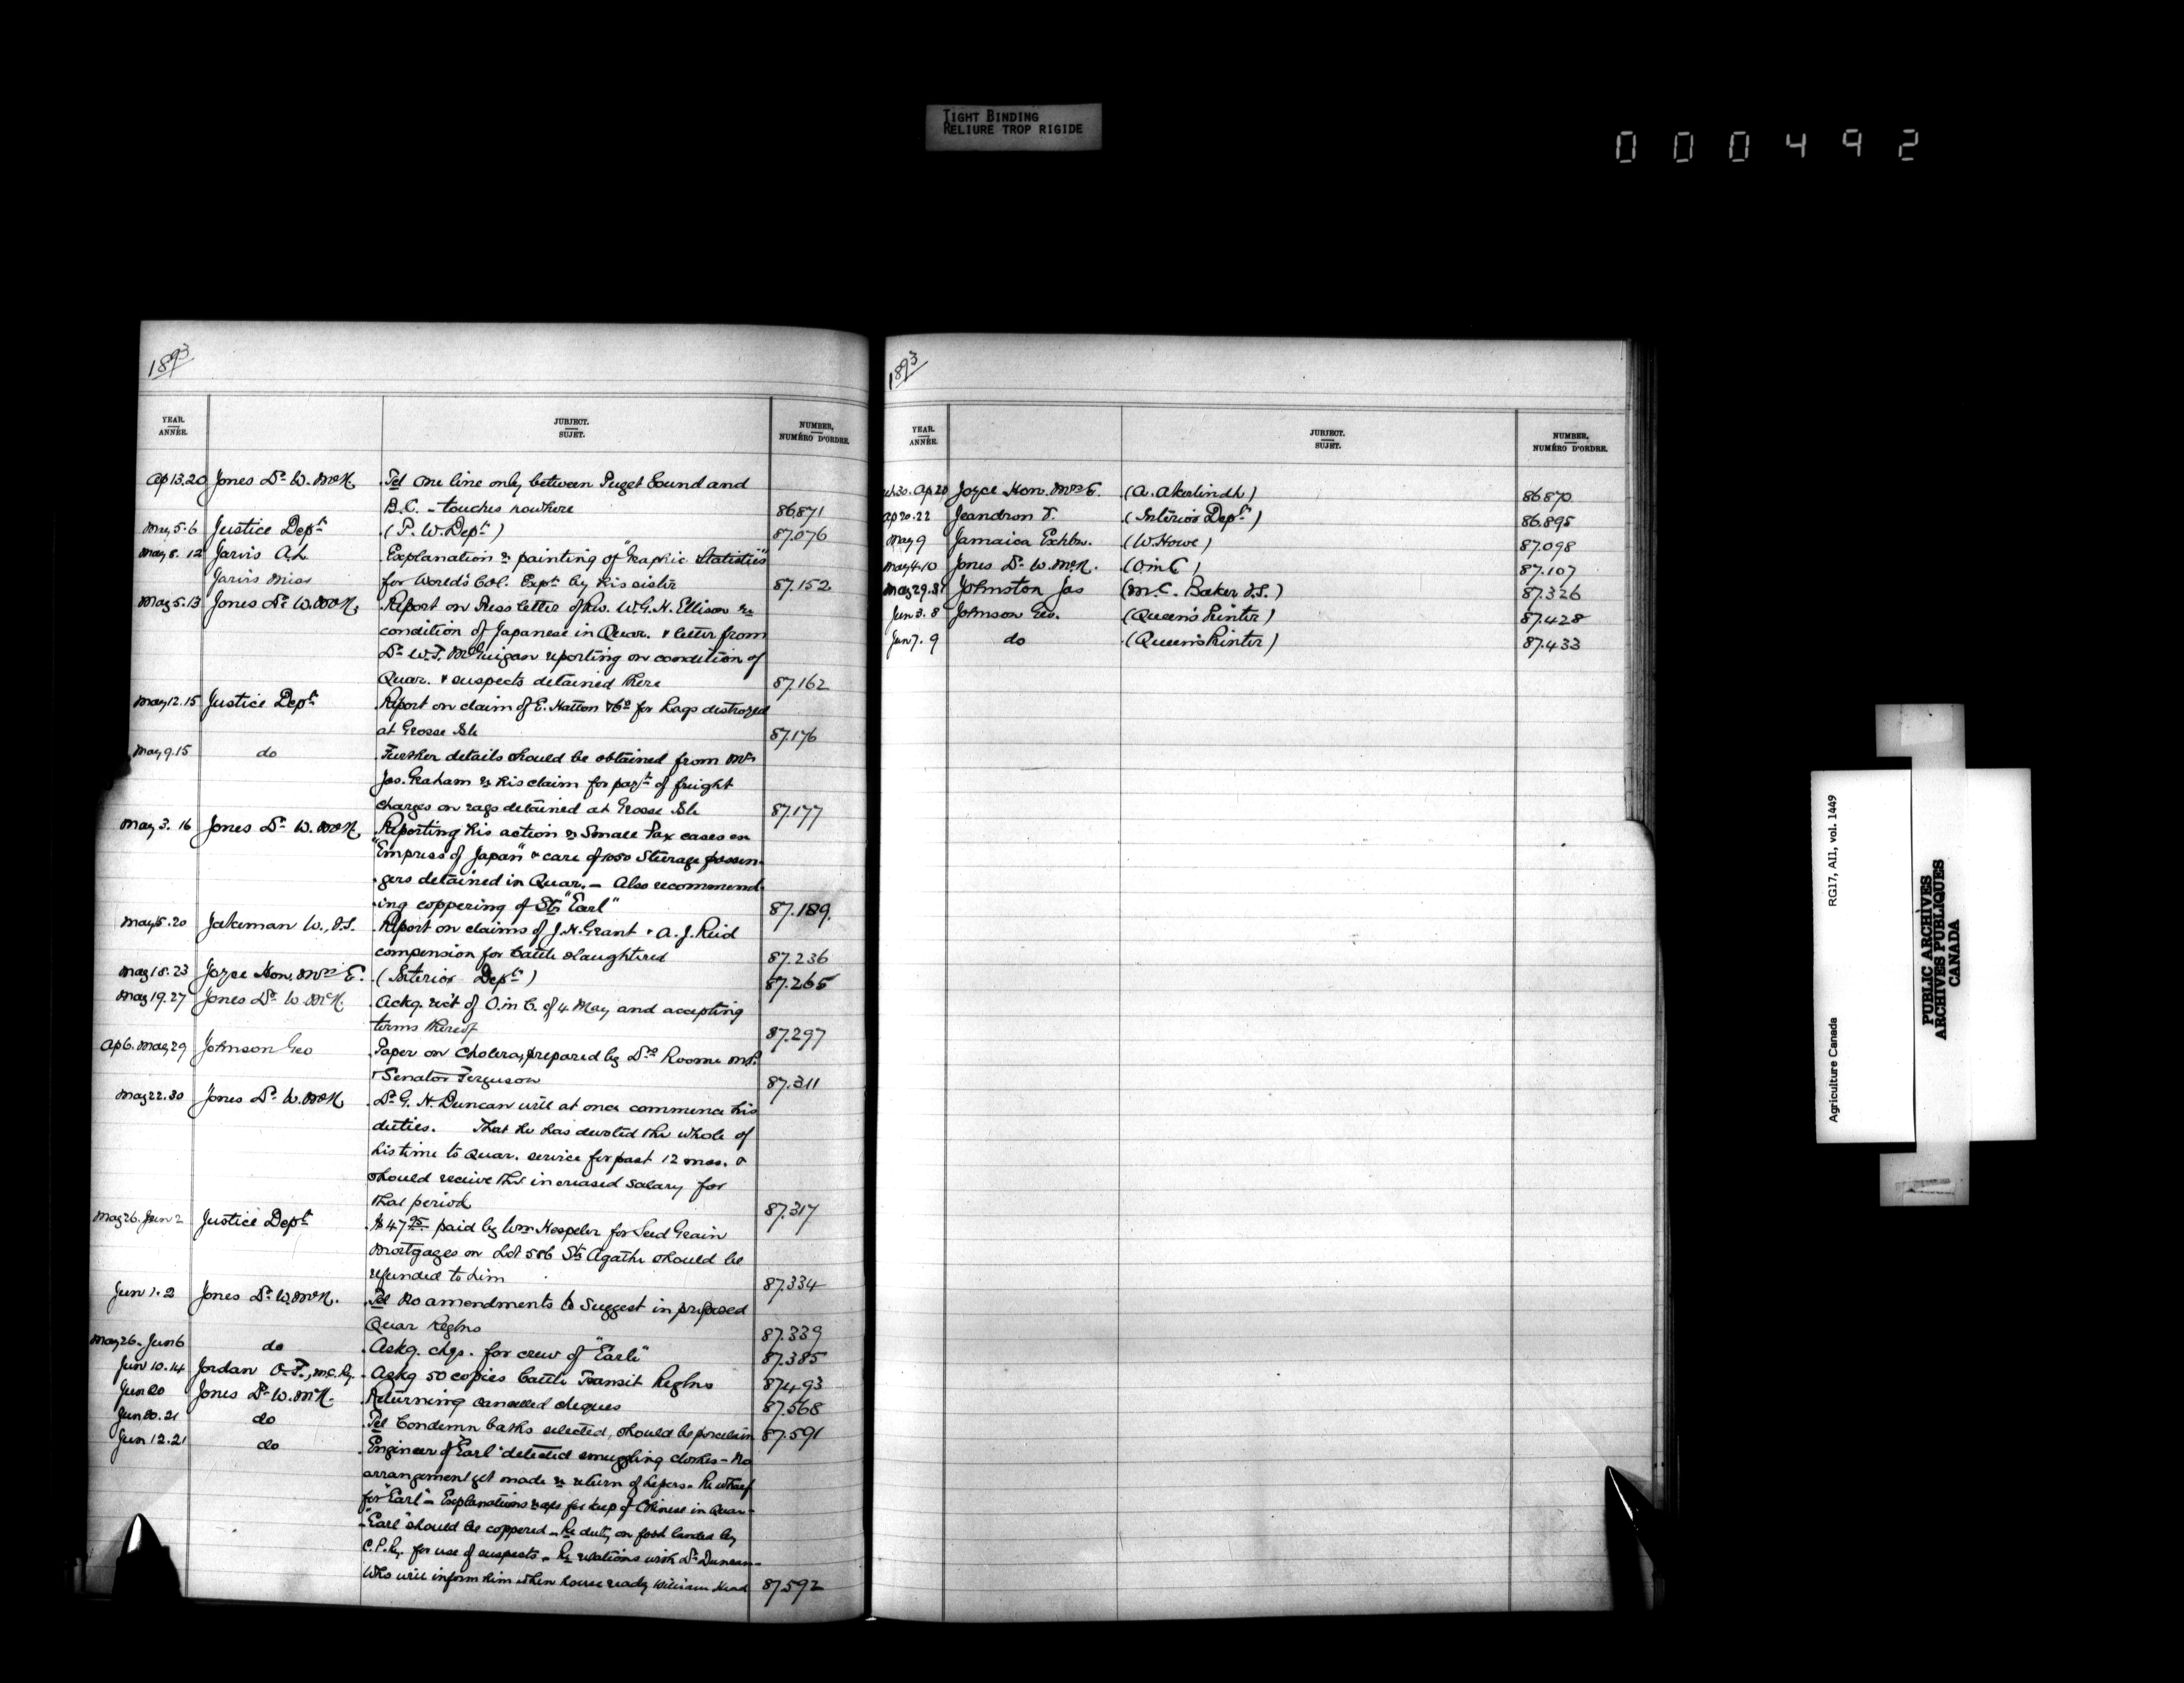 TIGHT BINDING
RELIURE TROP RIGIDE
000492
1893
YEAR. ANNÉE.
JUBJECT. SUJET.
NUMBER, NUMÉRO D'ORDRE.
Ap 13.20 Jones Dr. W. McN. Tel one line only between Puget Sound and
B.C. - touches nowhere 86.871
May 5.6 Justice Dept (P. W. Dept) 87.076
May 8.12 Jarvis A.L. Explanation re painting of "Graphic Statistics"
Jarvis Miss for World's Col. Expn by his sister 87.152
May 5.13 Jones Dr. W. McN. Report on Press letter of Rev. W.G.H. Ellison re
condition of Japanese in Quar. & letter from
Dr. W.J. McGuigan reporting on condition of
Quar. & suspects detained there 87.162
May 12.15 Justice Dept Report on claim of E. Hatton & Co for Rags destroyed
at Grosse Isle 87.176
May 9.15 do Further details should be obtained from Mr
Jas. Graham re his claim for payt of freight
charges on rags detained at Grosse Isle 87.177
May 3. 16 Jones Dr. W. McN. Reporting his action re Small Pax cases on
"Empress of Japan" & care of 1050 Steerage passen-
gers detained in Quar. - Also recommend-
ing coppering of Str "Earl" 87.189
May 15.20 Jakeman W., V.S. Report on claims of J.H. Grant & A.J. Reid
compension for Cattle slaughtered 87.236
May 18.23 Joyce Hon. Mrs E. (Interior Dept) 87.265
May 19.27 Jones Dr. W. McN. Ackg. rect of O.in C. of 4 May and accepting
terms thereof 87.297
Ap 6. May 29 Johnson Geo Paper on Cholera, prepared by Drs Roome M.P.
& Senator Ferguson 87.311
May 22.30 Jones Dr. W. McN. Dr G. H. Duncan will at once commence his
duties. That he has devoted the whole of
his time to Quar. service for past 12 mos. &
should receive the increased salary for
that period 87.317
May 26. Jun 2 Justice Dept $47.95 paid by Wm Hespeler for Seed Grain
Mortgages on Lot 586 Ste Agathe should be
refunded to him 87.334
Jun 1.2 Jones Dr. W. McN. Tel No amendments to suggest in proposed
Quar Reglns 87.339
May 26. Jun 6 do Askg. chgs. for crew of "Earle" 87.385
Jun 10.14 Jordan O.F., M.C. Ry. Askg 50 copies Cattle Transit Reglns 87.493
Jun 20 Jones Dr. W. McN. Returning cancelled cheques 87.568
Jun 20.21 do Tel Condemn baths selected, should be porcelain 87.591
Jun 12.21 do Engineer of "Earl" detected smuggling clothes - No
arrangement yet made re return of Lepers - Re wharf
for "Earl" - Explanations for keep of Chinese in Quar -
"Earl" should be coppered - Re duty on food landed by
C.P.Ry. for use of suspects - Re relations with Dr. Duncan -
Who will inform him when house ready William Head 87.592
1893
YEAR. ANNÉE.
JUBJECT. SUJET.
NUMBER, NUMÉRO D'ORDRE.
Mch 30. Ap 20 Joyce Hon. Mrs E. (A. Akerlindh) 86.870
Ap 20.22 Jeandron T. (Interior Dept) 86.895
May 9 Jamaica Exhbn. (W. Howe) 87.098
May 4.10 Jones Dr. W. McN. (O in C) 87.107
May 29.31 Johnston Jas (M.C. Baker V.S.) 87.326
Jun 3.8 Johnson Geo. (Queen's Printer) 87.428
Jun 7.9 do (Queen's Printer) 87.433
Agriculture Canada RG17, AI1, vol. 1449
PUBLIC ARCHIVES
ARCHIVES PUBLIQUES
CANADA